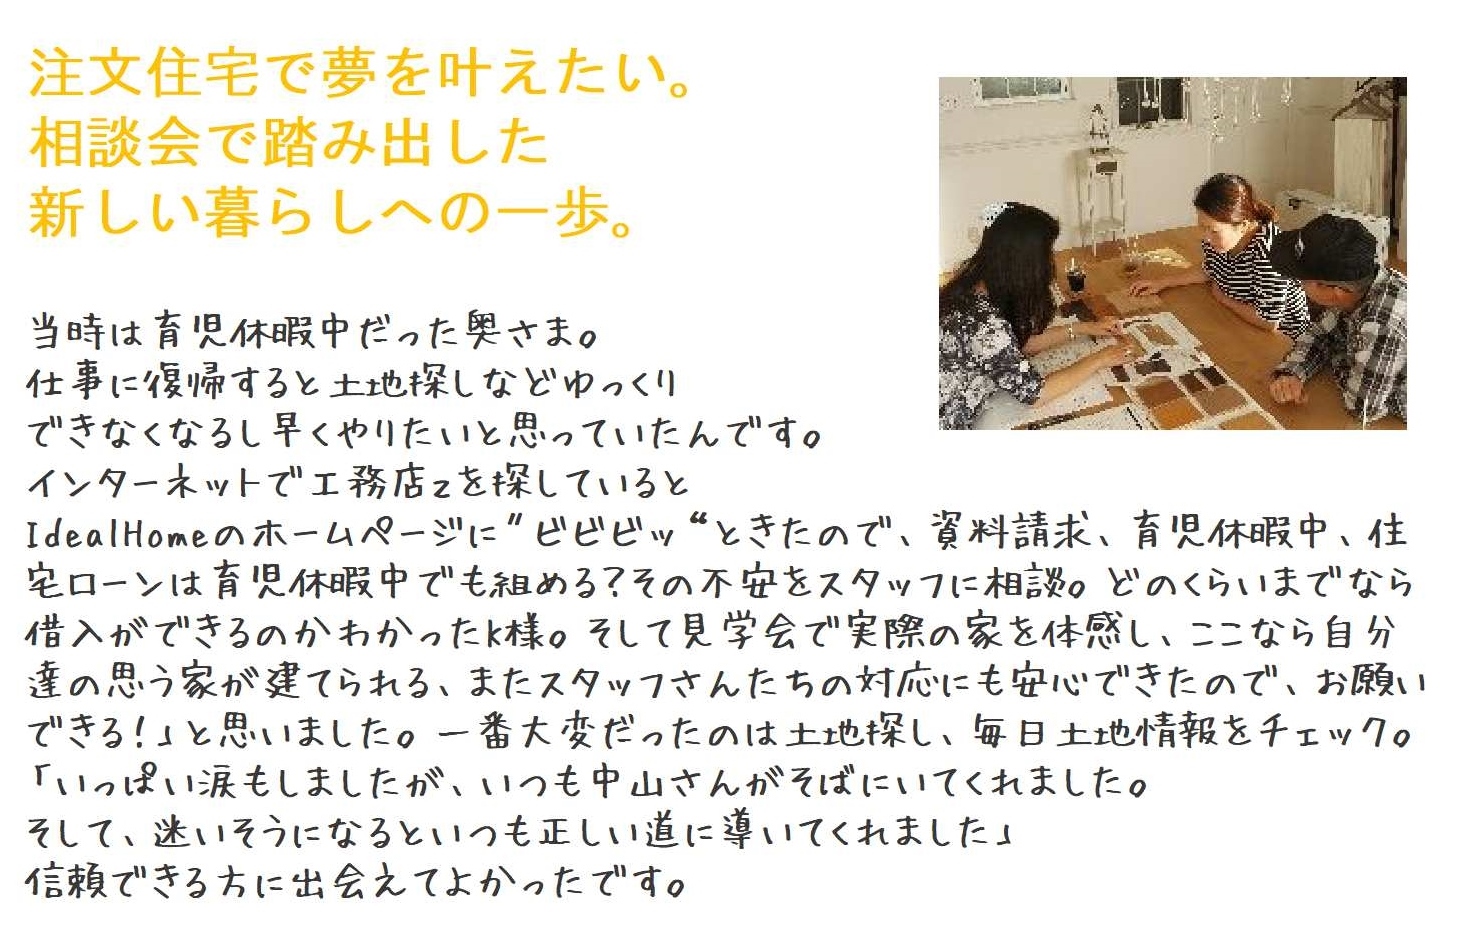 注文住宅で夢を叶えたい。
相談会で踏み出した
新しい暮らしへの一歩。
当時は育児休暇中だった奥さま。
仕事に復帰すると土地探しなどゆっくり
できなくなるし早くやりたいと思っていたんです。
インターネットで工務店zを探していると
IdealHomeのホームページに”ビビビッ“ときたので、資料請求、育児休暇中、住
宅ローンは育児休暇中でも組める?その不安をスタッフに相談。どのくらいまでなら
借入ができるのかわかったk様。そして見学会で実際の家を体感し、ここなら自分
達の思う家が建てられる、またスタッフさんたちの対応にも安心できたので、お願い
できる!」と思いました。一番大変だったのは土地探し、毎日土地情報をチェック。
「いっぱい涙もしましたが、いつも中山さんがそばにいてくれました。
そして、迷いそうになるといつも正しい道に導いてくれました」
信頼できる方に出会えてよかったです。